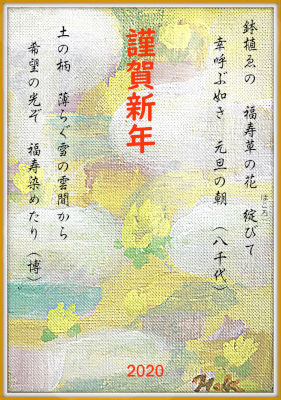 鉢植ゑの 福寿草の花 綻びて
ほころ
幸呼ぶ如き 元旦の朝 (八千代)
謹賀新年
土の柄 薄らぐ雪の雲間から
希望の光ぞ 福寿染めたり (博)
2020
H.K